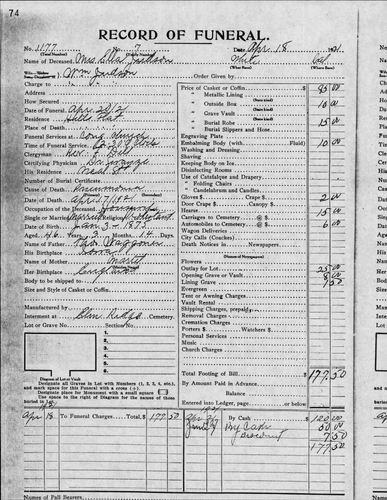 74
RECORD OF FUNERAL.
No. 1177 No. 7 Date Apr. 18 1921
(Total Number) (Yearly Number)
Name of Deceased Mrs. Ella Jackson White Cal
(What Race) (Where Born)
Wm Jackson Order Given by
Charge to
Address
How Secured
Date of Funeral Apr 20/21
Residence Hills Flat
Place of Death
Funeral Services at Cong. Church
Time of Funeral Service 2:30 o'clock
Clergyman Rev.
Certifying Physician Dr.
His Residence Neal St
Number of Burial Certificate
Cause of Death Pneumonia
Date of Death April 17 1921
Occupation of the Deceased Housewife
Single or Married Married
Date of Birth Jan. 3 - 1875
Aged 46 Years 3 Months 14 Days
Name of Father Waggoner
His Birthplace Iowa
Name of Mother
Her Birthplace England
Body to be shipped to
Size and Style of Casket or Coffin
Manufactured by
Interment at Elm Ridge Cemetery.
Lot or Grave No. Section No.
1.
2.
3.
4.
5.
6.
Diagram of Lot or Vault
Designate all Graves in Lot with Numbers (1, 2, 3, 4, etc.),
and mark space for this Funeral with a cross (+)
Designate place for Monument with a small square
Use space to the right of Diagram for the names of those
buried in lot.
Price of Casket or Coffin $ 85.00
" Metallic Lining
(State kind)
" Outside Box 10.00
(State kind)
" Grave Vault
(State kind)
" Burial Robe 15.00
(State kind)
" Burial Slippers and Hose
Engraving Plate
Embalming Body (with Fluid) 10.00
Washing and Dressing
Shaving
Keeping Body on Ice
Disinfecting Rooms
Use of Catafalque and Drapery
" Folding Chairs
" Candelabrum and Candles
Gloves $ Crape $ 2.00
Door Crape $ Canopy $
Hearse 15.00
Carriages to Cemetery @ $
Automobiles to Cemetery @ $ 6.00
Wagon Deliveries
City Calls (Coaches)
Death Notices in Newspapers
(Names of Newspapers)
Flowers
Outlay for Lot 25.00
Opening Grave or Vault 8.00
Lining Grave 1.50
Evergreen
Tent or Awning
Vault Rental
Shipping Charges, prepaid
Removal Charges
Cremation Charges
Porters $ Watchers $
Personal Services
Music
Church Charges
Total Footing of Bill $ 177.50
By Amount Paid in Advance
Balance
Entered into Ledger, page or below
1921
Apr 18 To Funeral Charges, Total, $ 177 50
1921
By Cash $ 120 00
By Cash 50 00
" discount 7 50
177.50
Names of Pall Bearers